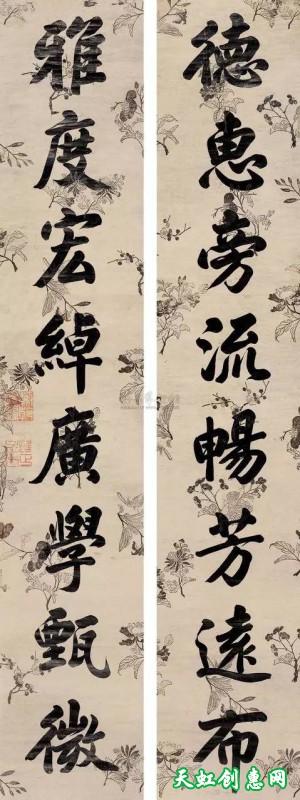 德惠旁流暢芳遠布
雅度宏綽廣學甄微
天虹创惠网